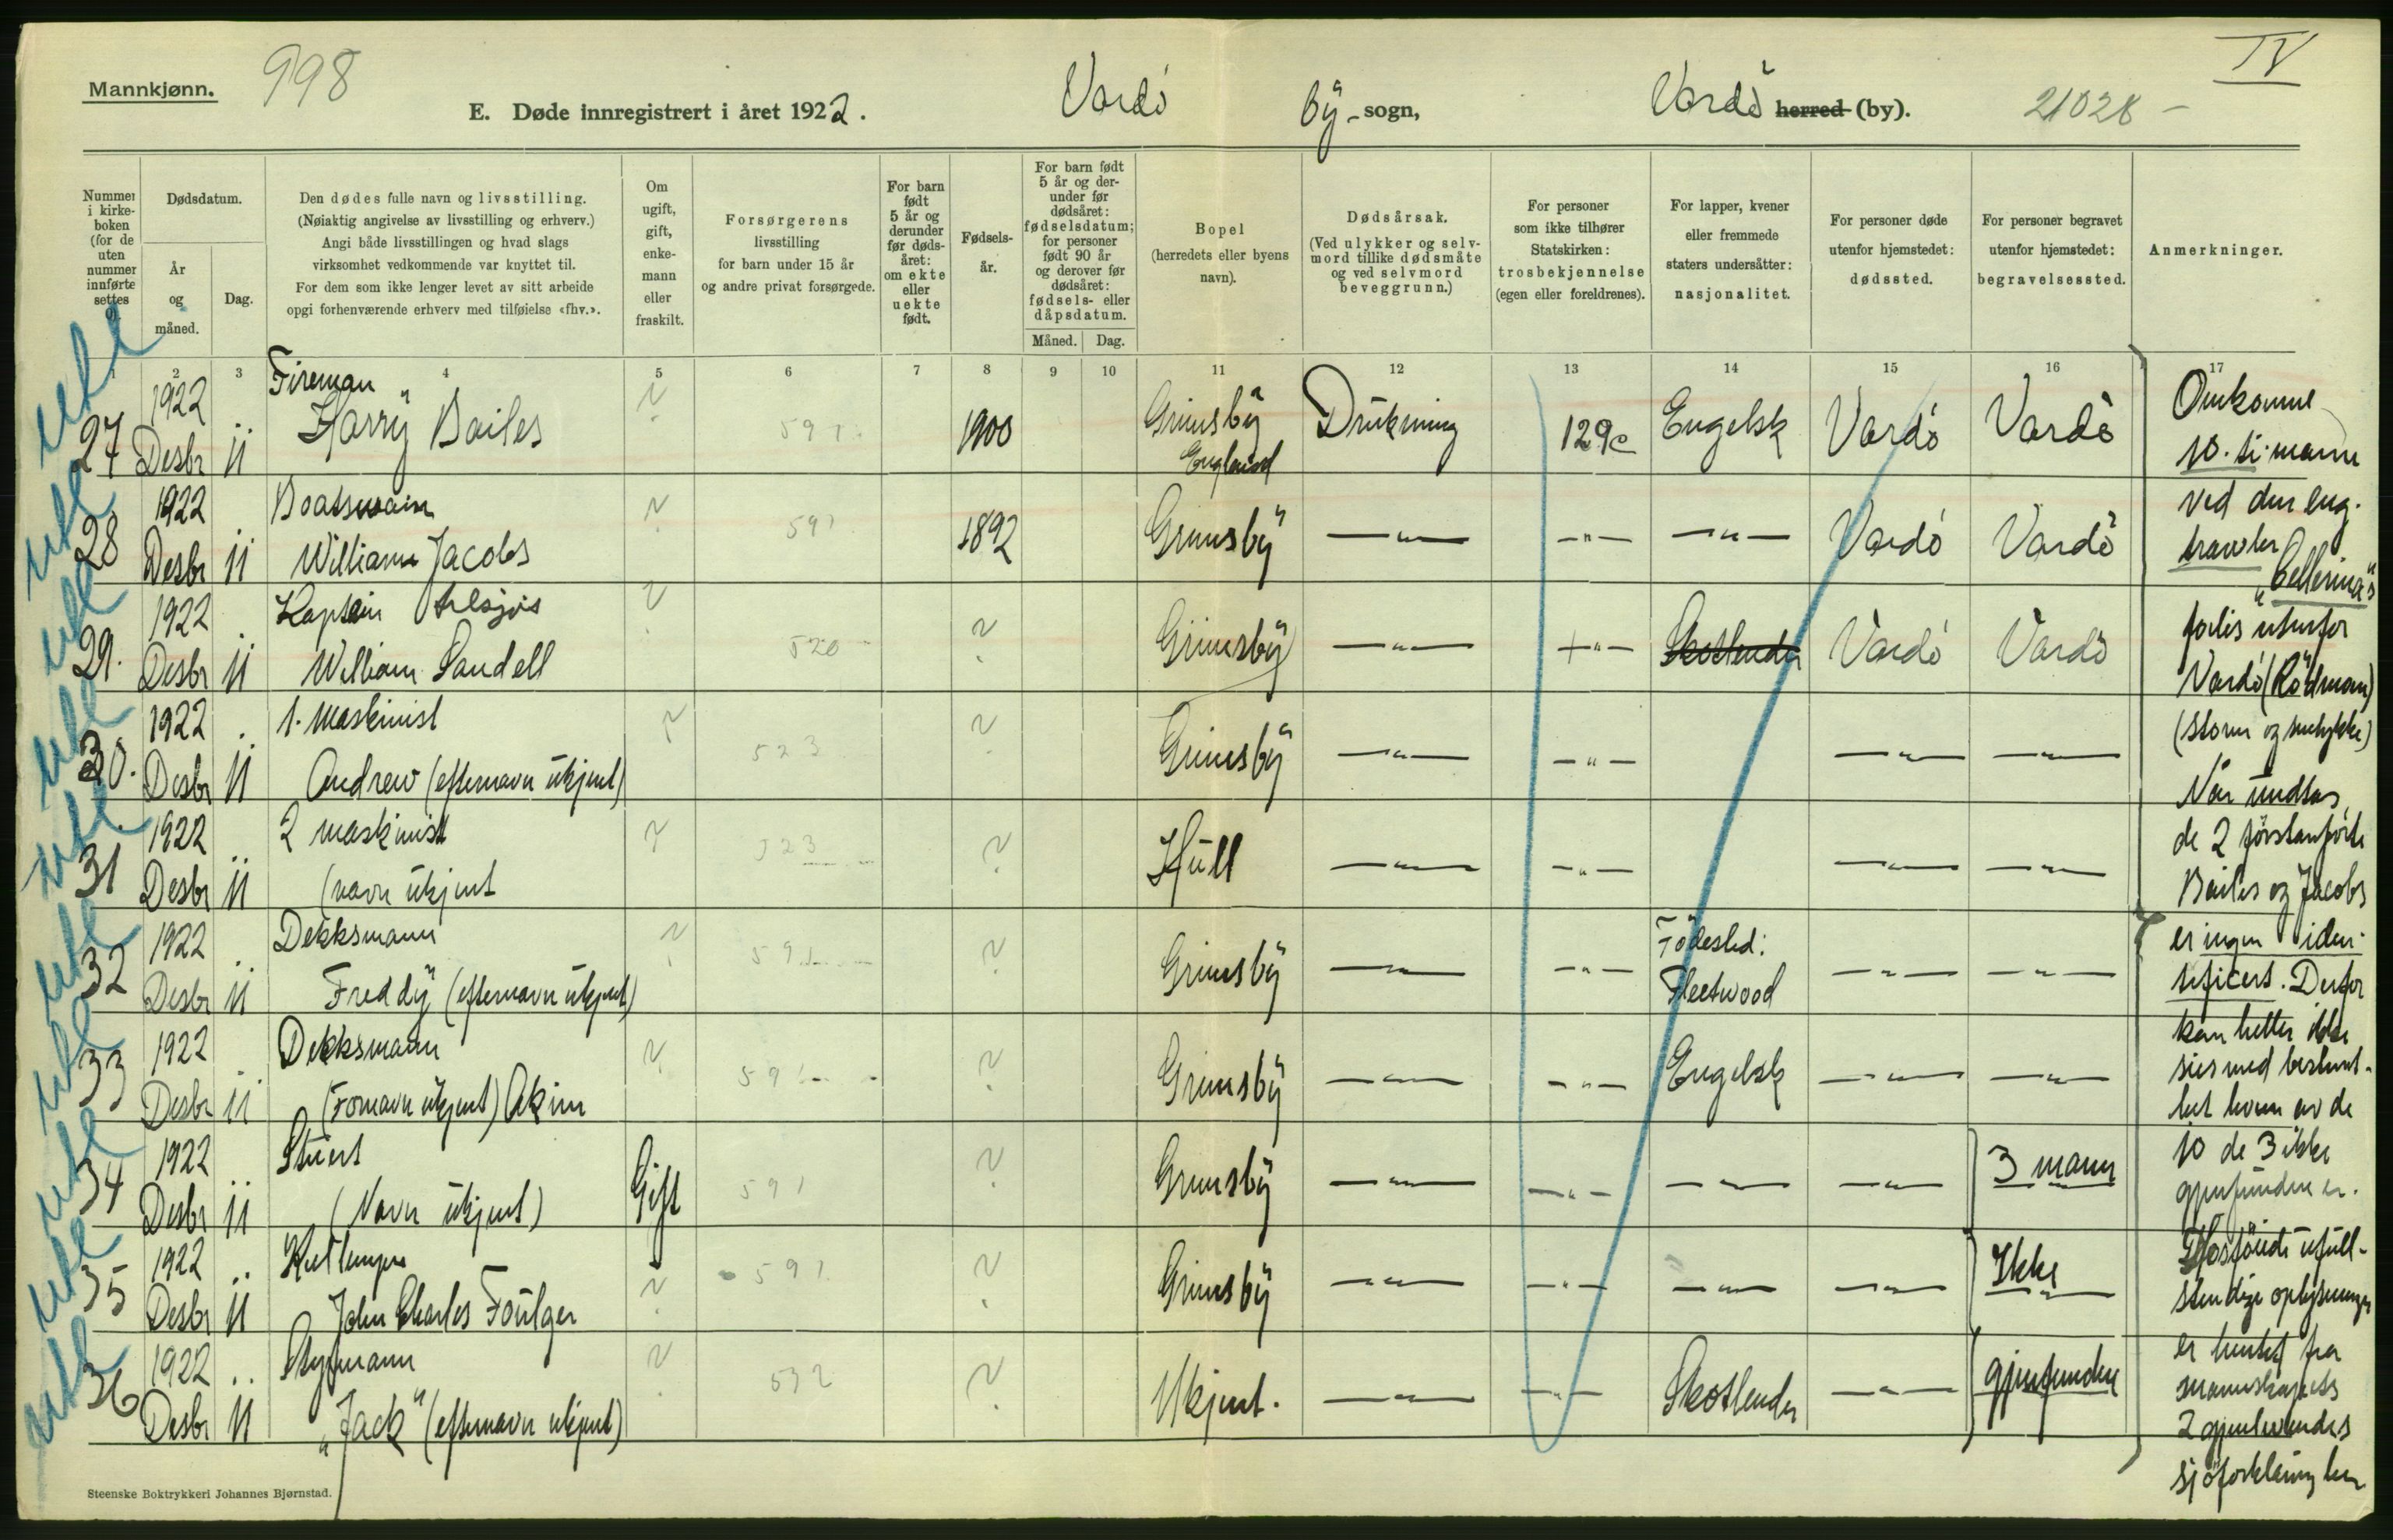 Mannkjønn.
998
E. Døde innregistrert i året 1922.
Vardö
by-sogn,
Vardö herred (by).
21028 -
IV
Nummer i kirke-boken (for de uten nummer innførte settes 0).
Dødsdatum.
År og måned.
Dag.
Den dødes fulle navn og livsstilling.
(Nøiaktig angivelse av livsstilling og erhverv.)
Angi både livsstillingen og hvad slags
virksomhet vedkommende var knyttet til.
For dem som ikke lenger levet av sitt arbeide
opgi forhenværende erhverv med tilføielse «fhv.».
Om ugift, gift, enke-mann eller fraskilt.
Forsørgerens
livsstilling
for barn under 15 år
og andre privat forsørgede.
For barn født 5 år og derunder før døds-året: om ekte eller uekte født.
Fødsels-år.
For barn født 5 år og der-under før dødsåret: fødselsdatum; for personer født 90 år og derover før dødsåret: fødsels- eller dåpsdatum.
Måned.
Dag.
Bopel
(herredets eller byens
navn).
Dødsårsak.
(Ved ulykker og selv-
mord tillike dødsmåte
og ved selvmord
beveggrunn.)
For personer
som ikke tilhører
Statskirken:
trosbekjennelse
(egen eller foreldrenes).
For lapper, kvener
eller fremmede
staters undersåtter:
nasjonalitet.
For personer døde
utenfor hjemstedet:
dødssted.
For personer begravet
utenfor hjemstedet:
begravelsessted.
Anmerkninger.
1 2 3 4 5 6 7 8 9 10 11 12 13 14 15 16 17
1922 Fireman ?
27 Desbr 11 Harry Bailes 591 1900 Grimsby England Drukning 129c Engelsk Vardö Vardö
1922 Boatswain ?
28 Desbr 11 William Jacobs 591 1892 Grimsby —"— —"— —"— Vardö Vardö
1922 Kaptein ?
29. Desbr 11 William Sandell 520 ? Grimsby —"— —"— Skotlender Vardö Vardö
1922 1. maskinist ?
30. Desbr 11 Andrew (efternavn ukjent) 523 ? Grimsby —"— —"— —"— —"—
1922 2 maskinist ?
31 Desbr 11 (navn ukjent 523 ? Hull —"— —"— —"— —"—
1922 Dekksmann ?
32 Desbr 11 Freddy (efternavn ukjent) 591 ? Grimsby —"— —"— Födested: Fleetwood —"— —"—
1922 Dekksmann ?
33 Desbr 11 (Fornavn ukjent) Akim 591 ? Grimsby —"— —"— Engelsk —"— —"—
1922 Stuert
34 Desbr 11 (Navn ukjent) Gift 591 ? Grimsby —"— —"— —"— —"— 3 mann
1922
35 Desbr 11 John Charles Foulger ? 591 ? Grimsby —"— —"— —"— —"— Ikke
1922 Styrmann ?
36 Desbr 11 „Jack" (efternavn ukjent) 532 ? Ukjent. —"— —"— Skotlender —"— gjenfundne
Omkomne
10. ti. mann
ved den eng.
trawler
„Cellerina"s
forlis utenfor
Vardö
(storm og snetykke)
Når undtas
de 2 förstanförte
Bailes og Jacobs
er ingen iden-
tificert. Derfor
kan heller ikke
sies med bestemt-
het hvem av de
10 de 3 ikke
gjenfundne er.
ufull-
stendige oplysninger
er hentet fra
mannskapets
2 gjenlevendes
sjöforklaring her
Steenske Boktrykkeri Johannes Bjørnstad.